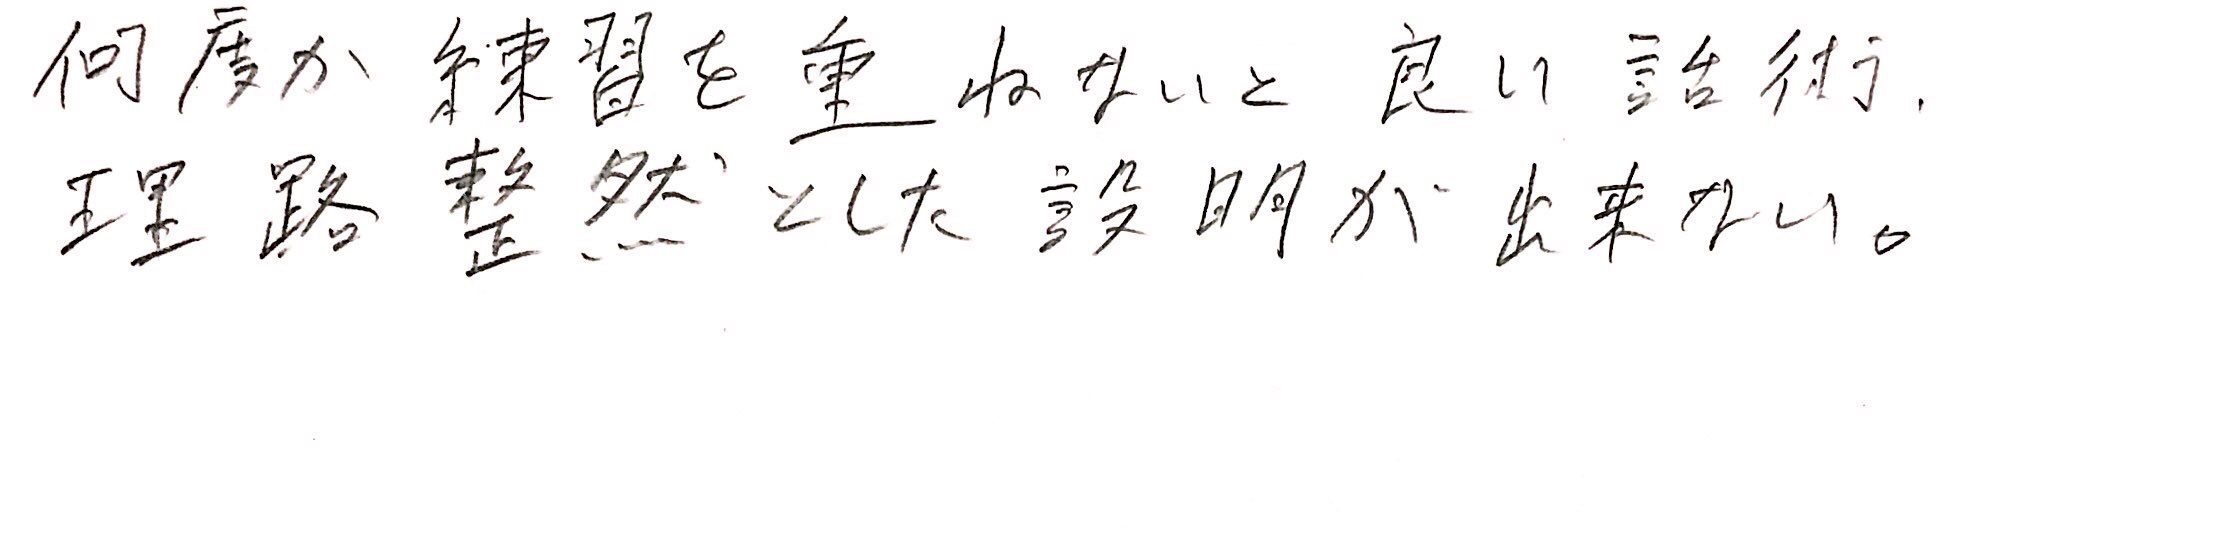 何度か練習を重ねないと良い話術、
理路整然とした説明が出来ない。